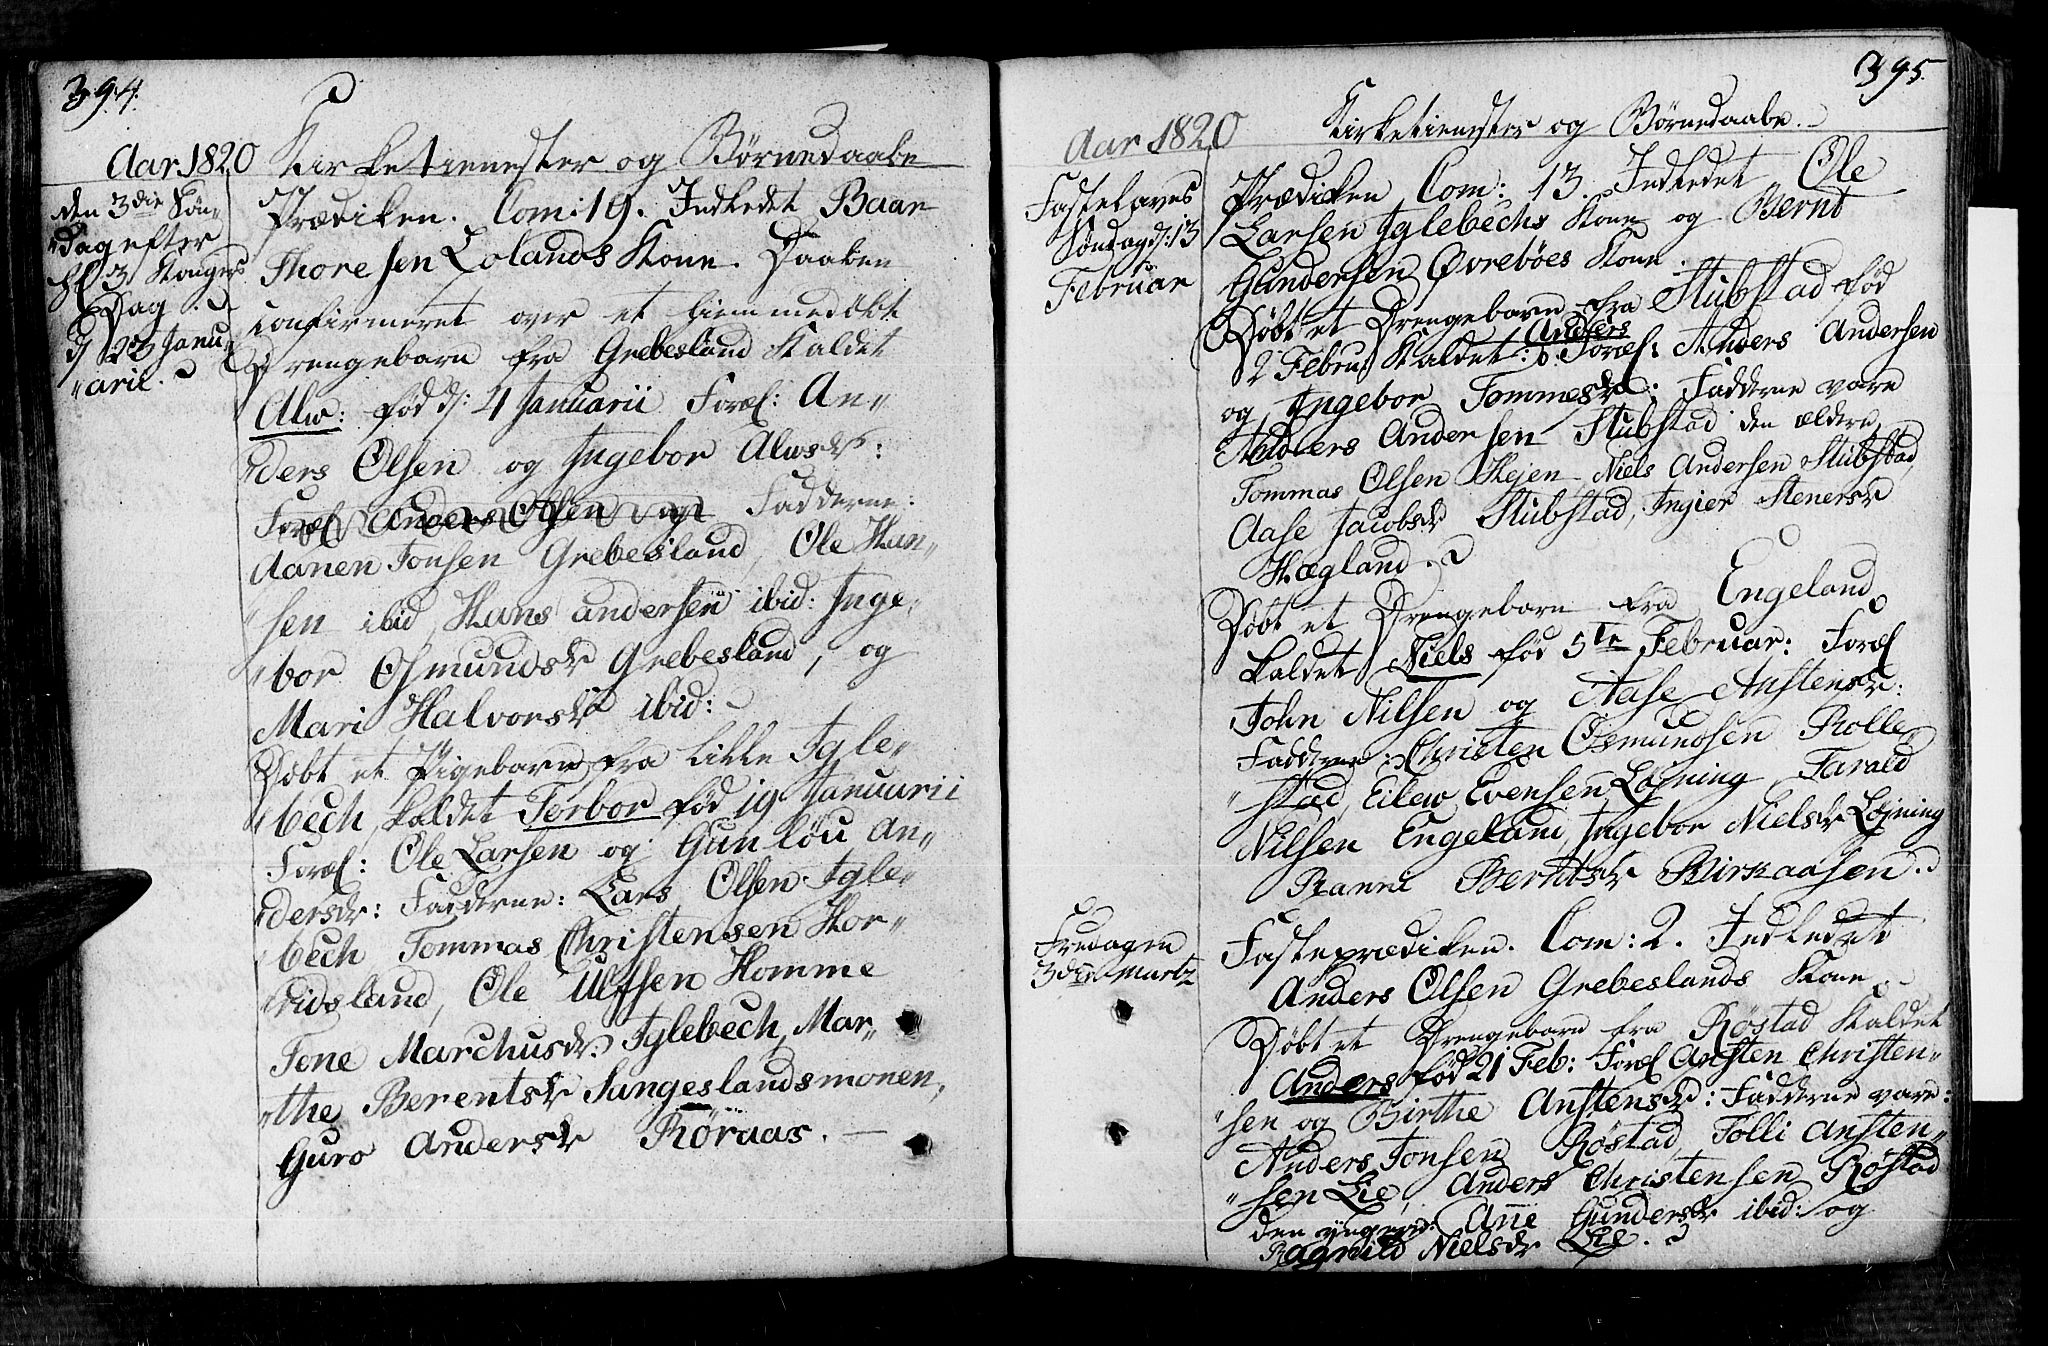 394.
Aar 1820 Kirketienester og Börnedaabe
den 3die Søn-
"dag efter
Hl 3 Konger
Dag.
d: 23 Janu-
"arii.
Prædiken. Com: 19. Indledet Baar
Thoresen Lolands Kone. Daaben
confirmeret over et hiemmedøbt
Drengebarn fra Grebesland kaldet
Alw: fød d: 4 Januarii Foræl: An-
"ders Olsen og Ingebor Alwsdr:
Foræl Anders Olsen og Fadderne:
Aanen Tonsen Grebesland, Ole Han-
"sen ibid, Hans andersen ibid: Inge-
"bor Osmundsdr Grebesland, og
Mari Halvorsdr ibid:
Døbt et Pigebarn fra Lille Igle-
"bech, kaldet Torbor fød 19 Januarii
Foræl: Ole Larsen og Gunlöu An-
"dersdr: Fadderne: Lars Olsen Igle-
"bech Tommas Christensen Hor-
"ridsland, Ole Ulfsen Homme
Tone Marchusdr: Iglebech, Mar-
"the Berentsdr Sangeslandsmonen,
Guro Andersdr Röraas.
395
Aar 1820 Kirketienester og Börnedaabe.
Fastelavns
Søndag d: 13
Februar
Prædiken Com: 13. Indledet Ole
Larsen Iglebechs Kone og Bernt
Gundersen Øvrebøes Kone.
Døbt et Drengebarn fra Stubstad fød
2 Febru, kaldet: Anders Foræl: Anders Andersen
og Ingebor Tommesdr: Fadderne vare
Anders Andersen Stubstad den ældere
Tommas Olsen Hejen Niels Andersen Stubstad
Aase Jacobsdr Stubstad, Ingier Stenersdr
Hægland.
Døbt et Drengebarn fra Engeland
kaldet Niels fød 5te Februar: Foræl
John Nilsen og Aase Anstensdr:
Fadderne: Christen Osmundsen Rolle-
"stad, Eilew Evensen Løjning, Tarald
Nilsen Engeland, Ingebor Nielsdr Løjning
Ranni Berntsdr Birkaasen.
Fredagen
3die Martz
Fasteprædiken. Com: 2. Indledet
Anders Olsen Grebeslands Kone
Døbt et Drengebarn fra Røstad kaldet
Anders fød 21 Feb: Foræl Ansten Christen-
"sen og Birthe Anstensdr: Fadderne vare:
Anders Tonsen Røstad, Tolli Ansten-
"sen Lie, Anders Christensen Røstad
den yngere: Ane Gundersdr ibid: og
Ragnild Nielsdr Lie.